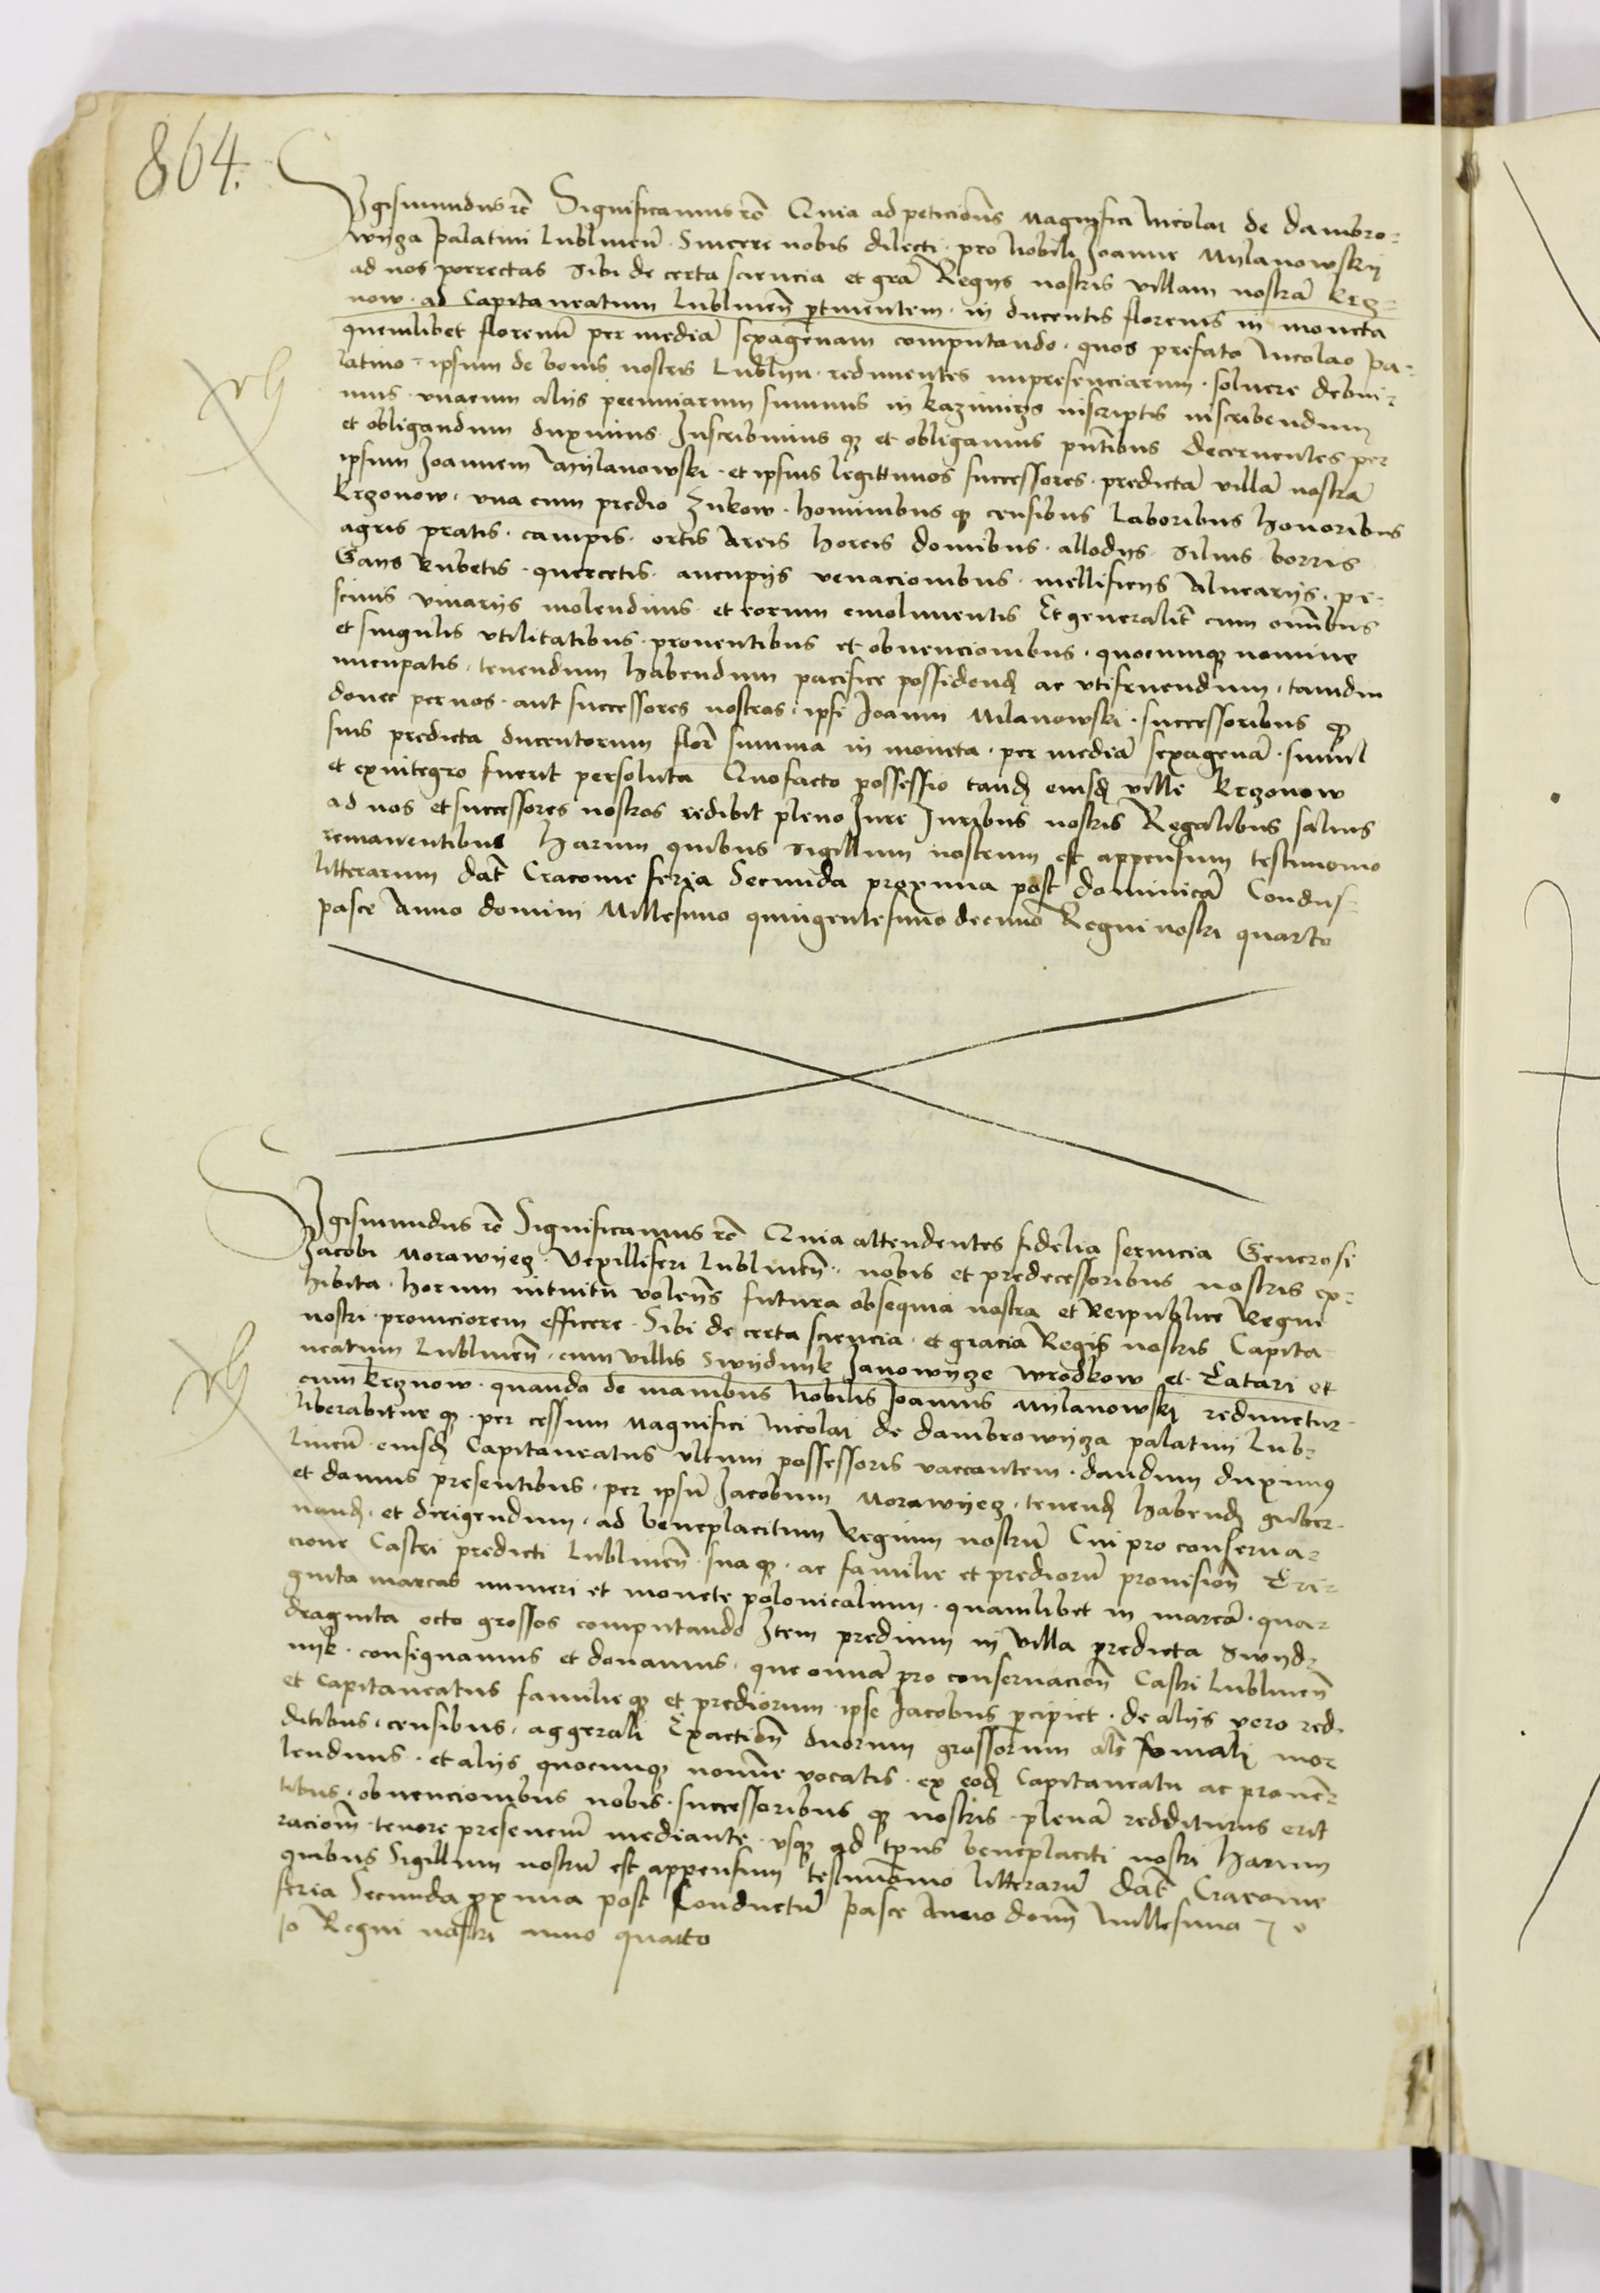 864.
Sigismundus rc̃ Significamus rc̃ Quia ad peticiones Magnifici Nicolai de Dambro-
wycza palatini Lublineñ. Sincere nobis dilecti. pro Nobili Joanne Mylanowskij
ad nos porrectas Sibi de certa sciencia et grã Regijs nostris villam nostrã Krcz-
now. ad Capitaneatum Lublineñ ptinentem. in ducentis florenis in moneta
quemlibet florenũ per mediã sexagenam computando. quos prefato Nicolao pa-
latino. ipsum de bonis nostris Lublyn. redimentes impresenciarum. soluere debui-
mus. vnacum alijs pecuniarum summis in Kazimirzs inscriptis inscribendum
et obligandum duximus Inscribimus qȝ et obligamus pñtibus Decernentes per
ipsum Joannem Mylanowski. et ipsius legittimos successores. predictã villã nostrã
Krczonow. vna cum predio Zukow. hominibus qȝ censibus laboribus honoribus
agris pratis. campis. ortis Areis horeis domibus. allodijs. siluis borris
Gays Rubetis. quercetis. aucupijs venacionibus. mellificijs Aluearijs. pi-
scinis viuarijs molendinis et eorum emolimentis Et generalit̃ cum omĩbus
et singulis vtilitatibus. prouentibus et obuencionibus. quocumqȝ nomine
nuncupatis. tenendum habendum pacifice possidendȝ ac vtifruendum. tamdiu
donec per nos. aut successores nostros. ipsi Joanni Milanowski. successoribus qȝ
suis predicta ducentorum floř summa in moneta. per mediã sexagenã. simul
et exintegro fuerit persoluta Quofacto possessio tandȝ eiusdȝ ville Krczonow
ad nos et successores nostros redibit pleno Jure Juribus nostris Regalibus saluis
remanentibus Harum quibus sigillum nostrum est appensum testimonio
litterarum Dat̃ Cracouie feria Secunda proxima post dominicã Conduc-
pasce Anno domini Millesimo quingentesimo decimo Regni nostri quarto
Sigismundus rc̃ Significamus rc̃ Quia attendentes fidelia seruicia Generosi
Jacobi Morawyecz. Vexilliferi Lublineñ. nobis et predecessoribus nostris ex-
hibita. horum intuitu volentes futura obsequia nostra et Reipublice Regni
nostri. proniciorem efficere. Sibi de certa sciencia. et gracia Regijs nostris Capita-
neatum Lublineñ. cum villis Swydnyk Janowycze Wrodkow et Tatari et
cum Krcznow. quando de manibus Nobilis Joannis Mylanowski redimetur.
liberabiturqȝ. per cessum Magnifici Nicolai de Dambrowycza palatini Lub-
lineñ. eiusdȝ Capitaneatus vltimi possessoris vaccantem. dandum duximus
et damus presentibus. per ipsũ Jacobum Morawyecz. tenendȝ habendȝ guber-
nandȝ. et dirigendum. ad beneplacitum Regium nostrũ Cui pro conserua-
cione Castri predicti Lublineñ. sua qȝ. ac familie et prediorũ prouisioñ Tri-
ginta marcas numeri et monete polonicalium. quamlibet in marcã. qua-
draginta octo grossos computando Item predium in villa predicta Swyd-
nyk. consignamus et donamus. que omnia pro conseruacioñ Castri Lublineñ
et Capitaneatus familie qȝ et prediorum. ipse Jacobus pcipiet. de alijs vero red-
ditibus. censibus. aggerali Exactioñ duorum grossorum mo-
lendinis. et alijs quocumqȝ nomĩe vocatis. ex eodȝ Capitaneatu ac prouen-
tibus. obuencionibus nobis. successoribus qȝ nostris. plenã redditurus erit
racioñ. tenore presenciũ mediante. vsqȝ ad tp̃us beneplaciti nostri Harum
quibus Sigillum nostrũ est appensum testimonio litterarũ Dat̃ Cracouie
feria Secunda pxima post Conductũ pasce Anno domĩ Millesimo
Io Regni nostri anno quarto